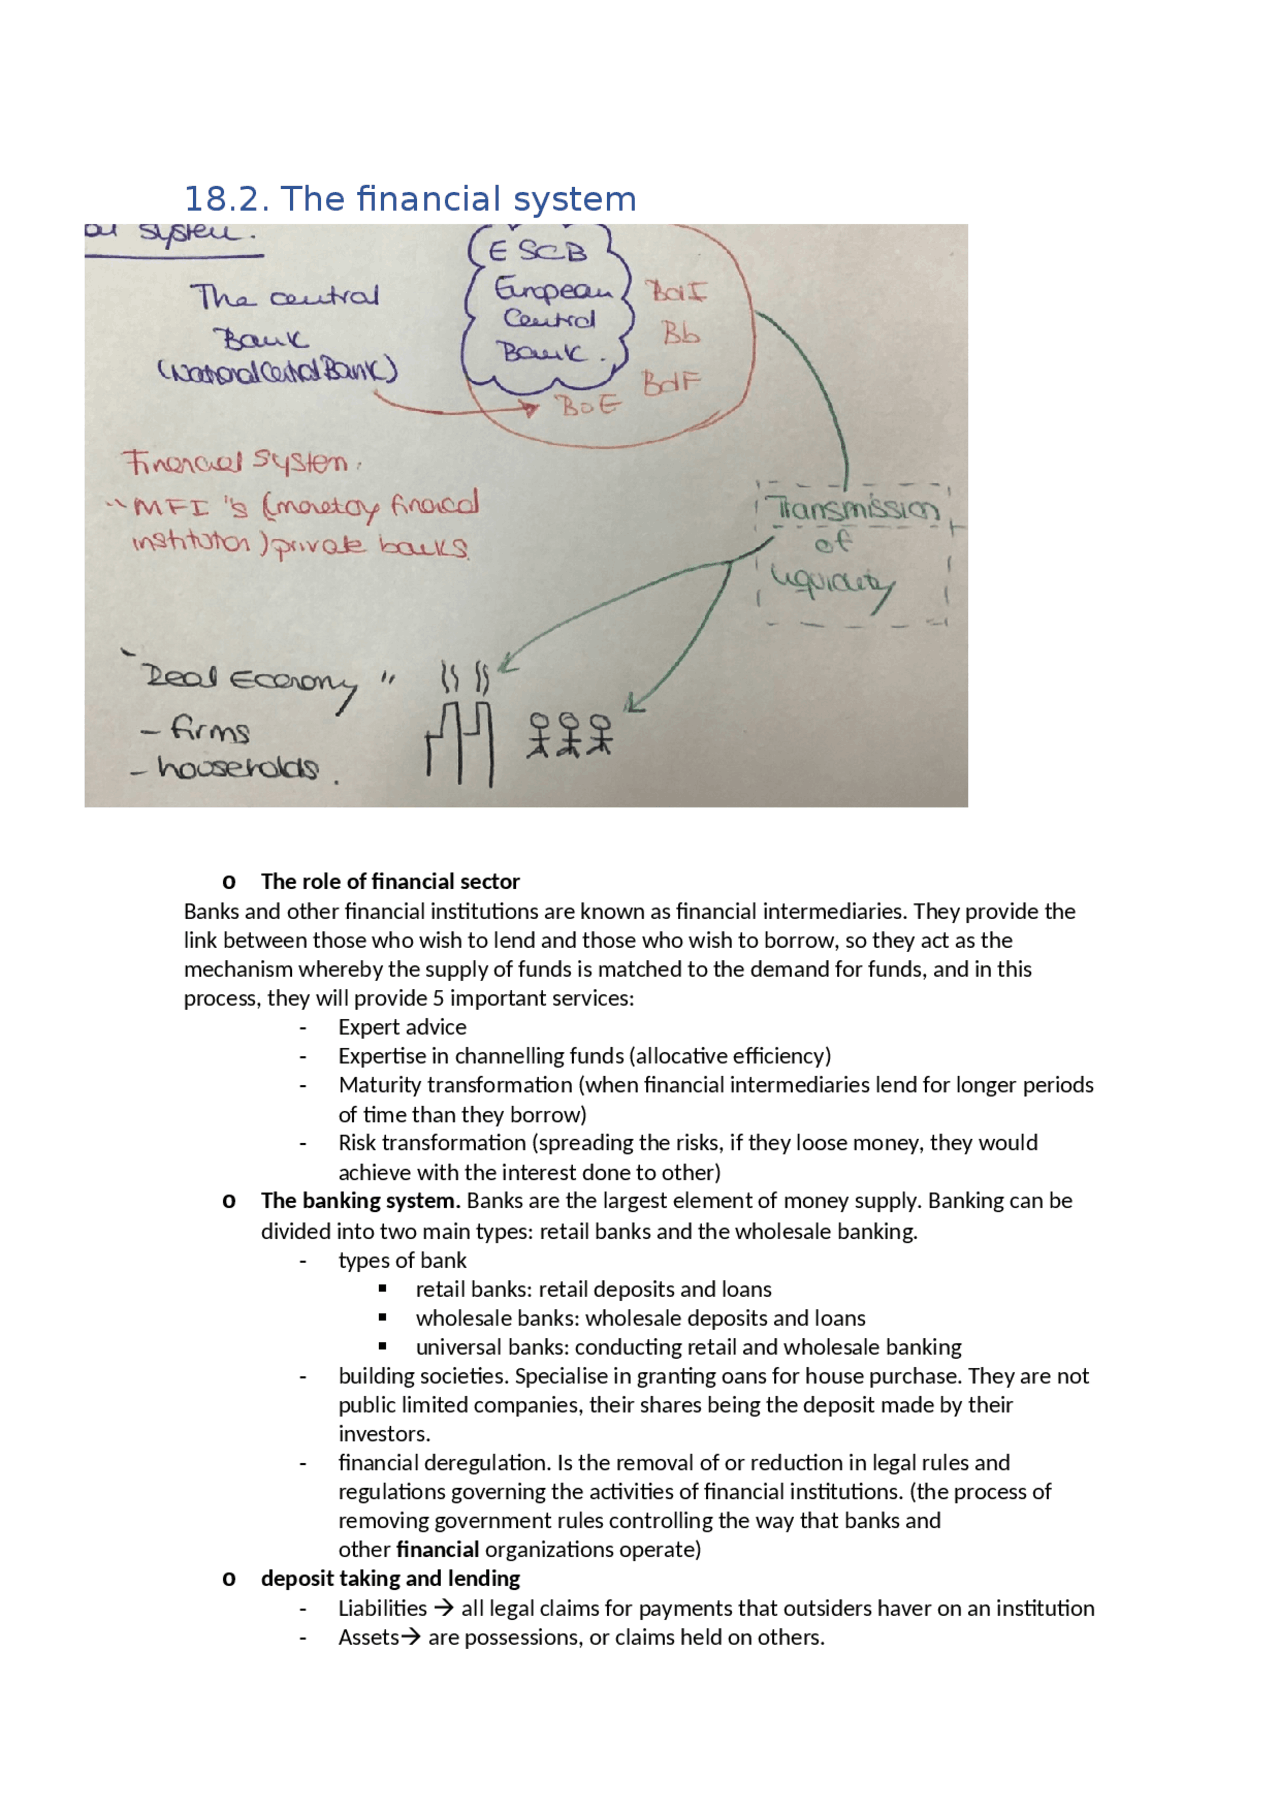 18.2. The financial system
system.
The central
Bank
(National Central Bank)
ESCB
European
Central
Bank.
BdI
Bb
BdF
BoE
Financial System.
"MFI's (monetary financial
institution) private banks.
Transmission
of
liquidity
"Real Economy"
- firms
- households.
o The role of financial sector
Banks and other financial institutions are known as financial intermediaries. They provide the
link between those who wish to lend and those who wish to borrow, so they act as the
mechanism whereby the supply of funds is matched to the demand for funds, and in this
process, they will provide 5 important services:
- Expert advice
- Expertise in channelling funds (allocative efficiency)
- Maturity transformation (when financial intermediaries lend for longer periods
of time than they borrow)
- Risk transformation (spreading the risks, if they loose money, they would
achieve with the interest done to other)
o The banking system. Banks are the largest element of money supply. Banking can be
divided into two main types: retail banks and the wholesale banking.
- types of bank
▪ retail banks: retail deposits and loans
▪ wholesale banks: wholesale deposits and loans
▪ universal banks: conducting retail and wholesale banking
- building societies. Specialise in granting oans for house purchase. They are not
public limited companies, their shares being the deposit made by their
investors.
- financial deregulation. Is the removal of or reduction in legal rules and
regulations governing the activities of financial institutions. (the process of
removing government rules controlling the way that banks and
other financial organizations operate)
o deposit taking and lending
- Liabilities → all legal claims for payments that outsiders haver on an institution
- Assets→ are possessions, or claims held on others.